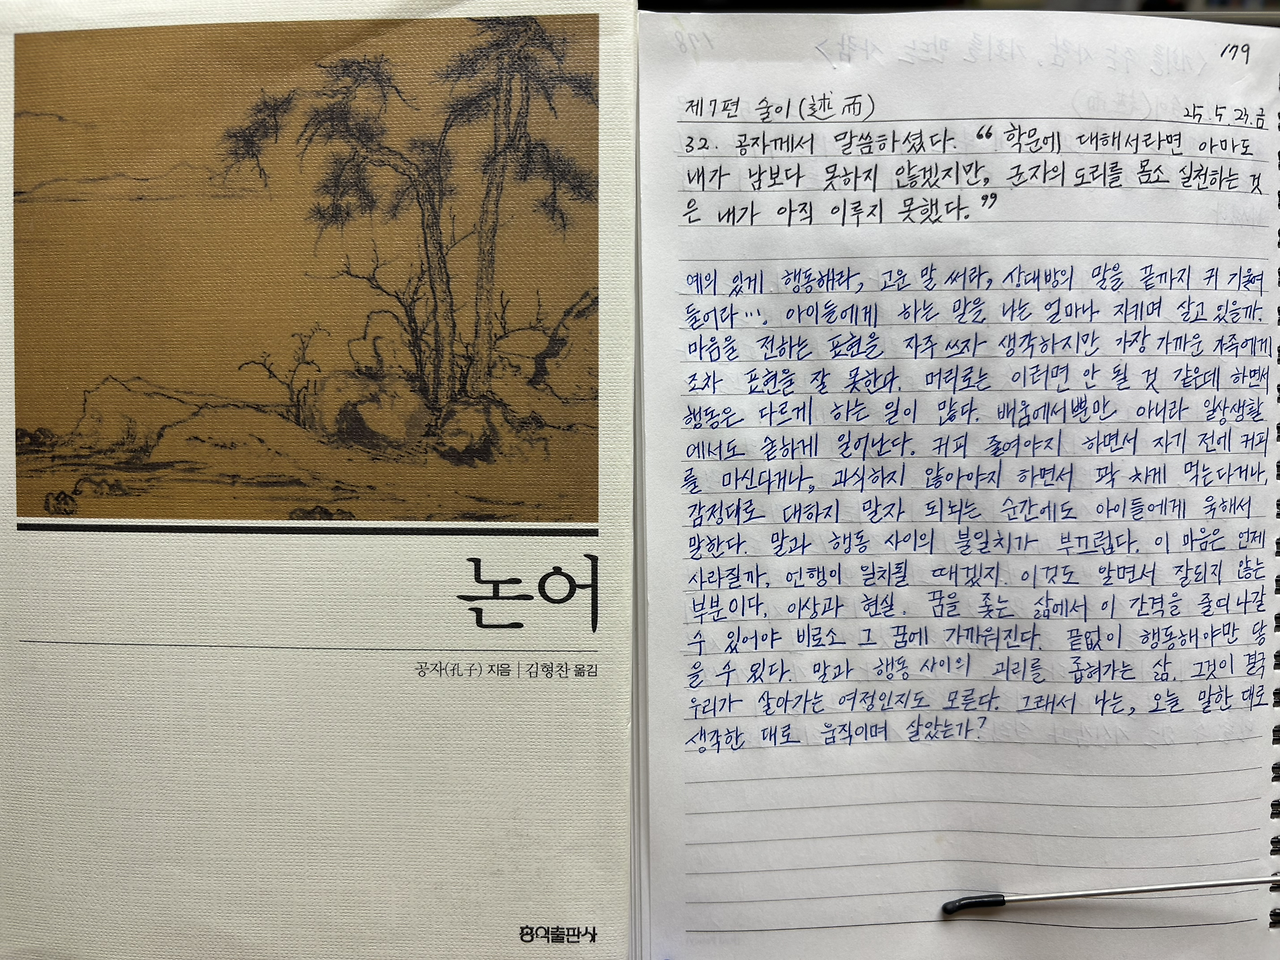 논어
공자(孔子) 지음 | 김형찬 옮김
홍익출판사
179
제7편 술이(述而)
25. 5. 23. 금
32. 공자께서 말씀하셨다. “학문에 대해서라면 아마도
내가 남보다 못하지 않겠지만, 군자의 도리를 몸소 실천하는 것
은 내가 아직 이루지 못했다.”
예의 있게 행동해라, 고운 말 써라, 상대방의 말을 끝까지 귀 기울여
들어라…. 아이들에게 하는 말을 나는 얼마나 지키며 살고 있을까.
마음을 전하는 표현을 자주 쓰자 생각하지만 가장 가까운 가족에게
조차 표현을 잘 못한다. 머리로는 이러면 안 될 것 같은데 하면서
행동은 다르게 하는 일이 많다. 배움에서뿐만 아니라 일상생활
에서도 숱하게 일어난다. 커피 줄여야지 하면서 자기 전에 커피
를 마신다거나, 과식하지 않아야지 하면서 꽉 차게 먹는다거나,
감정대로 대하지 말자 되뇌는 순간에도 아이들에게 욱해서
말한다. 말과 행동 사이의 불일치가 부끄럽다. 이 마음은 언제
사라질까, 언행이 일치될 때겠지. 이것도 알면서 잘되지 않는
부분이다. 이상과 현실. 꿈을 좇는 삶에서 이 간격을 줄여나갈
수 있어야 비로소 그 꿈에 가까워진다. 끝없이 행동해야만 닿
을 수 있다. 말과 행동 사이의 괴리를 좁혀가는 삶. 그것이 결국
우리가 살아가는 여정인지도 모른다. 그래서 나는, 오늘 말한 대로
생각한 대로 움직이며 살았는가?